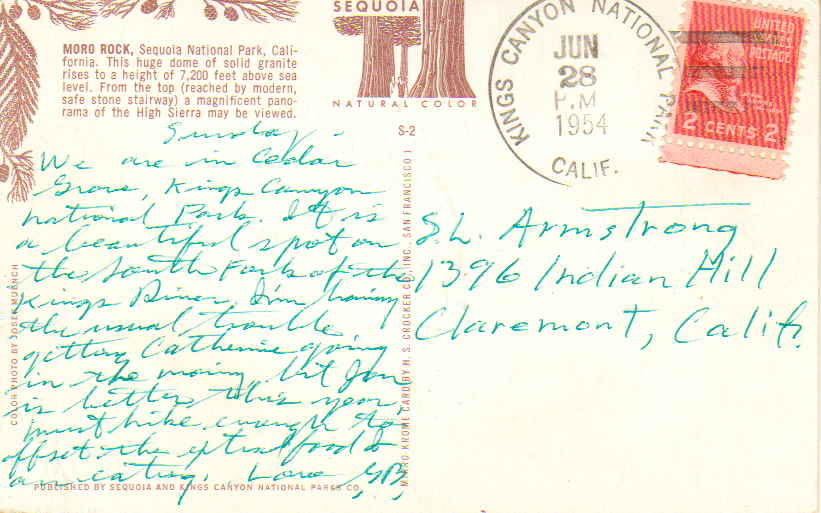 SEQUOIA
NATURAL COLOR
MORO ROCK, Sequoia National Park, Cali-
fornia. This huge dome of solid granite
rises to a height of 7,200 feet above sea
level. From the top (reached by modern,
safe stone stairway) a magnificent pano-
rama of the High Sierra may be viewed.
S-2
KINGS CANYON NATIONAL PARK
JUN
28
P.M
1954
CALIF.
UNITED
STATES
POSTAGE
2 CENTS 2
Sunday.
We are in Cedar
Grove, Kings Canyon
National Park. It is
a beautiful spot on
the South Fork of the
Kings River. I'm having
the usual trouble
getting Catherine going
in the morning but
is better this year,
must hike enough to
offset the extra food I
am eating. Love
S.L. Armstrong
1396 Indian Hill
Claremont, Calif.
COLOR PHOTO BY JOSEF MUENCH
MIRRO KROME CARD BY H. S. CROCKER CO., INC. SAN FRANCISCO 1
PUBLISHED BY SEQUOIA AND KINGS CANYON NATIONAL PARKS CO.